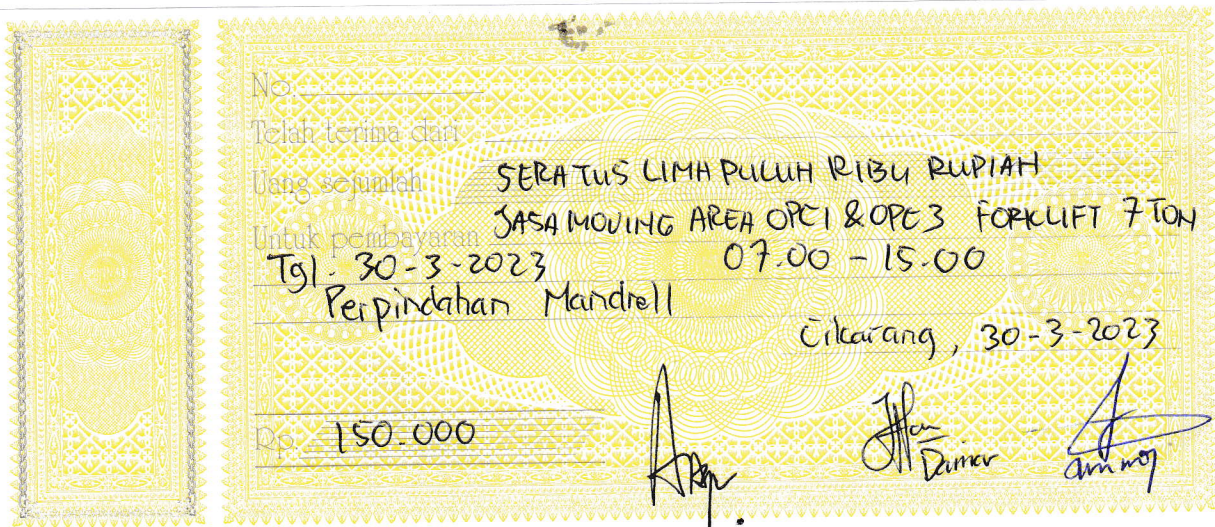 No.
Telah terima dari
Uang sejumlah SERATUS LIMA PULUH RIBU RUPIAH
Untuk pembayaran JASA MOVING AREA OPC1 & OPC3 FORKLIFT 7 TON
Tgl. 30-3-2023 07.00 - 15.00
Perpindahan Mandrell
Cikarang, 30-3-2023
Rp. 150.000
Damar